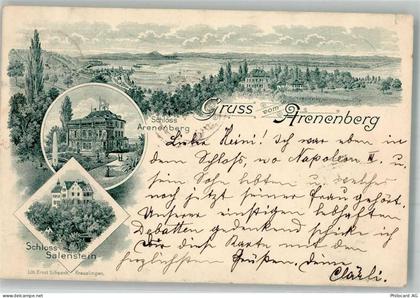 Gruss vom Arenenberg
Schloss
Arenenberg
Liebe Heini! Ich war eben in
dem Schloss, wo Napoleon III. u.
sein Sohn lebten u.
noch jetzt seiner Frau gehört.
Unserer einstigen lebhaften
Debatten gedenkend schicke ich
Dir diese Karte mit den
herzlichsten Grüßen, Deine
Clärli.
Schloss
Salenstein
Lith. Ernst Schwenk, Kreuzlingen.
PICCARD AG